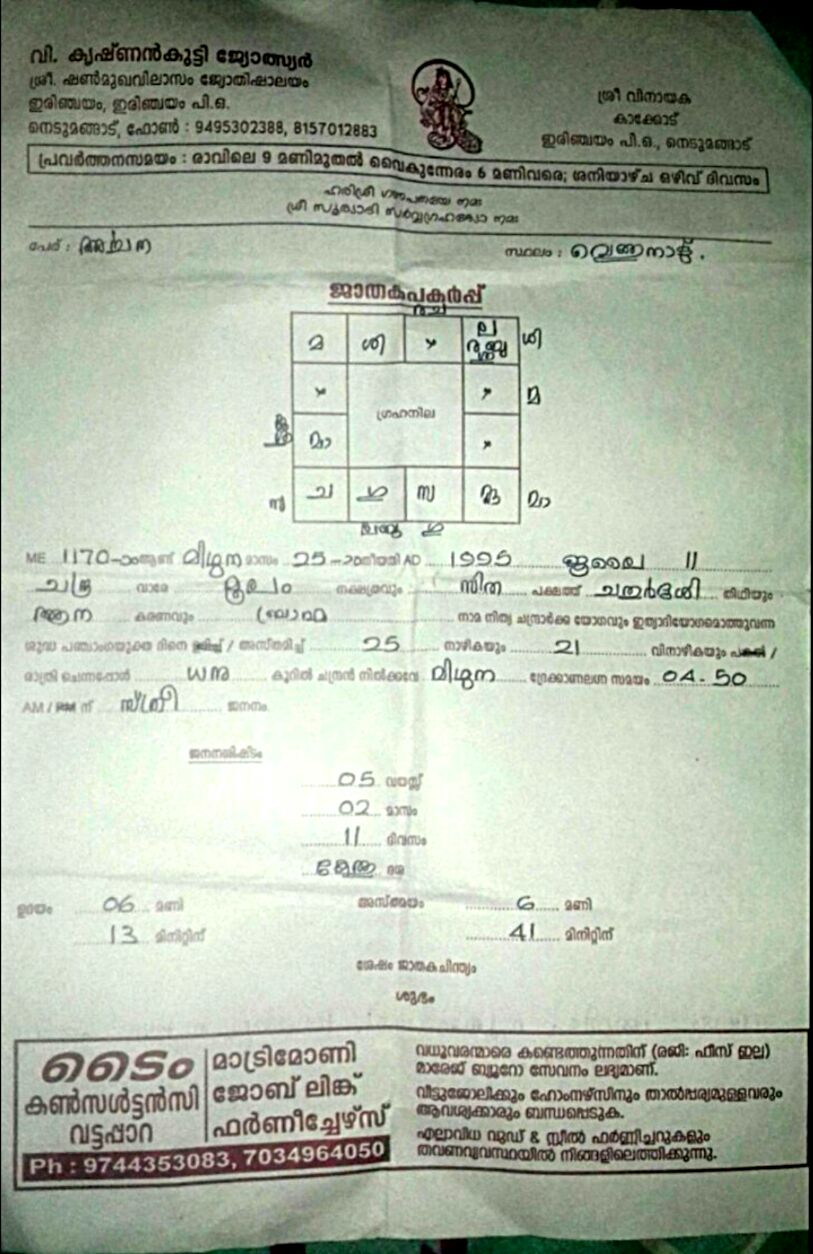 വി. കൃഷ്ണൻകുട്ടി ജ്യോത്സ്യർ
ശ്രീ. ഷൺമുഖവിലാസം ജ്യോതിഷാലയം
ഇരിഞ്ചയം, ഇരിഞ്ചയം പി.ഒ.
നെടുമങ്ങാട്, ഫോൺ : 9495302388, 8157012883
ശ്രീ വിനായക
കാക്കോട്
ഇരിഞ്ചയം പി.ഒ., നെടുമങ്ങാട്
പ്രവർത്തനസമയം : രാവിലെ 9 മണിമുതൽ വൈകുന്നേരം 6 മണിവരെ; ശനിയാഴ്ച ഒഴിവ് ദിവസം
ഹരിശ്രീ ഗണപതയെ നമഃ
ശ്രീ സൂര്യാദി സർവ്വഗ്രഹങ്ങ്യോ നമഃ
പേര് : അർച്ചന സ്ഥലം :
ജാതകപകർപ്പ്
മ ശി × ല
ശി
× ×
മ
ഗ്രഹനില
മാ ×
ച ഗു സ
മാ
ഗു
ME 1170-ാംആണ്ട് മിഥുന മാസം 25-ാംതീയതി AD 1995 ജൂലൈ 11
വാരേ മൂലം നക്ഷത്രവും സിത പക്ഷത്ത് ചതുർദ്ദശി തിഥിയും
ആന കരണവും നാമ നിത്യ ചന്ദ്രാർക്ക യോഗവും ഇത്യാദിയോഗമൊത്തുവന്ന
ശുദ്ധ പഞ്ചാംഗയുക്ത ദിനെ / അസ്തമിച്ച് 25 നാഴികയും 21 വിനാഴികയും പകൽ /
രാത്രി ചെന്നപ്പോൾ ധനു കൂറിൽ ചന്ദ്രൻ നിൽക്കവേ മിഥുന ദ്രേക്കാണലഗ്ന സമയം 04-50
AM / PM ന് സ്ത്രീ ജനനം
ജനനശിഷ്ടം
05 വയസ്സ്
02 മാസം
11 ദിവസം
കേതു ദശ
ഉദയം 06 മണി അസ്തമയം 6 മണി
13 മിനിറ്റിന് 41 മിനിറ്റിന്
ശേഷം ജാതകചിന്ത്യം
ശുഭം
ടൈം
കൺസൾട്ടൻസി
വട്ടപ്പാറ
മാട്രിമോണി
ജോബ് ലിങ്ക്
ഫർണീച്ചേഴ്സ്
Ph : 9744353083, 7034964050
വധൂവരന്മാരെ കണ്ടെത്തുന്നതിന് (രജി: ഫീസ് ഇല്ല)
മാരേജ് ബ്യൂറോ സേവനം ലഭ്യമാണ്.
വീട്ടുജോലിക്കും ഹോംനഴ്സിനും താൽപ്പര്യമുള്ളവരും
ആവശ്യക്കാരും ബന്ധപ്പെടുക.
എല്ലാവിധ വുഡ് & സ്റ്റീൽ ഫർണ്ണിച്ചറുകളും
തവണവ്യവസ്ഥയിൽ നിങ്ങളിലെത്തിക്കുന്നു.